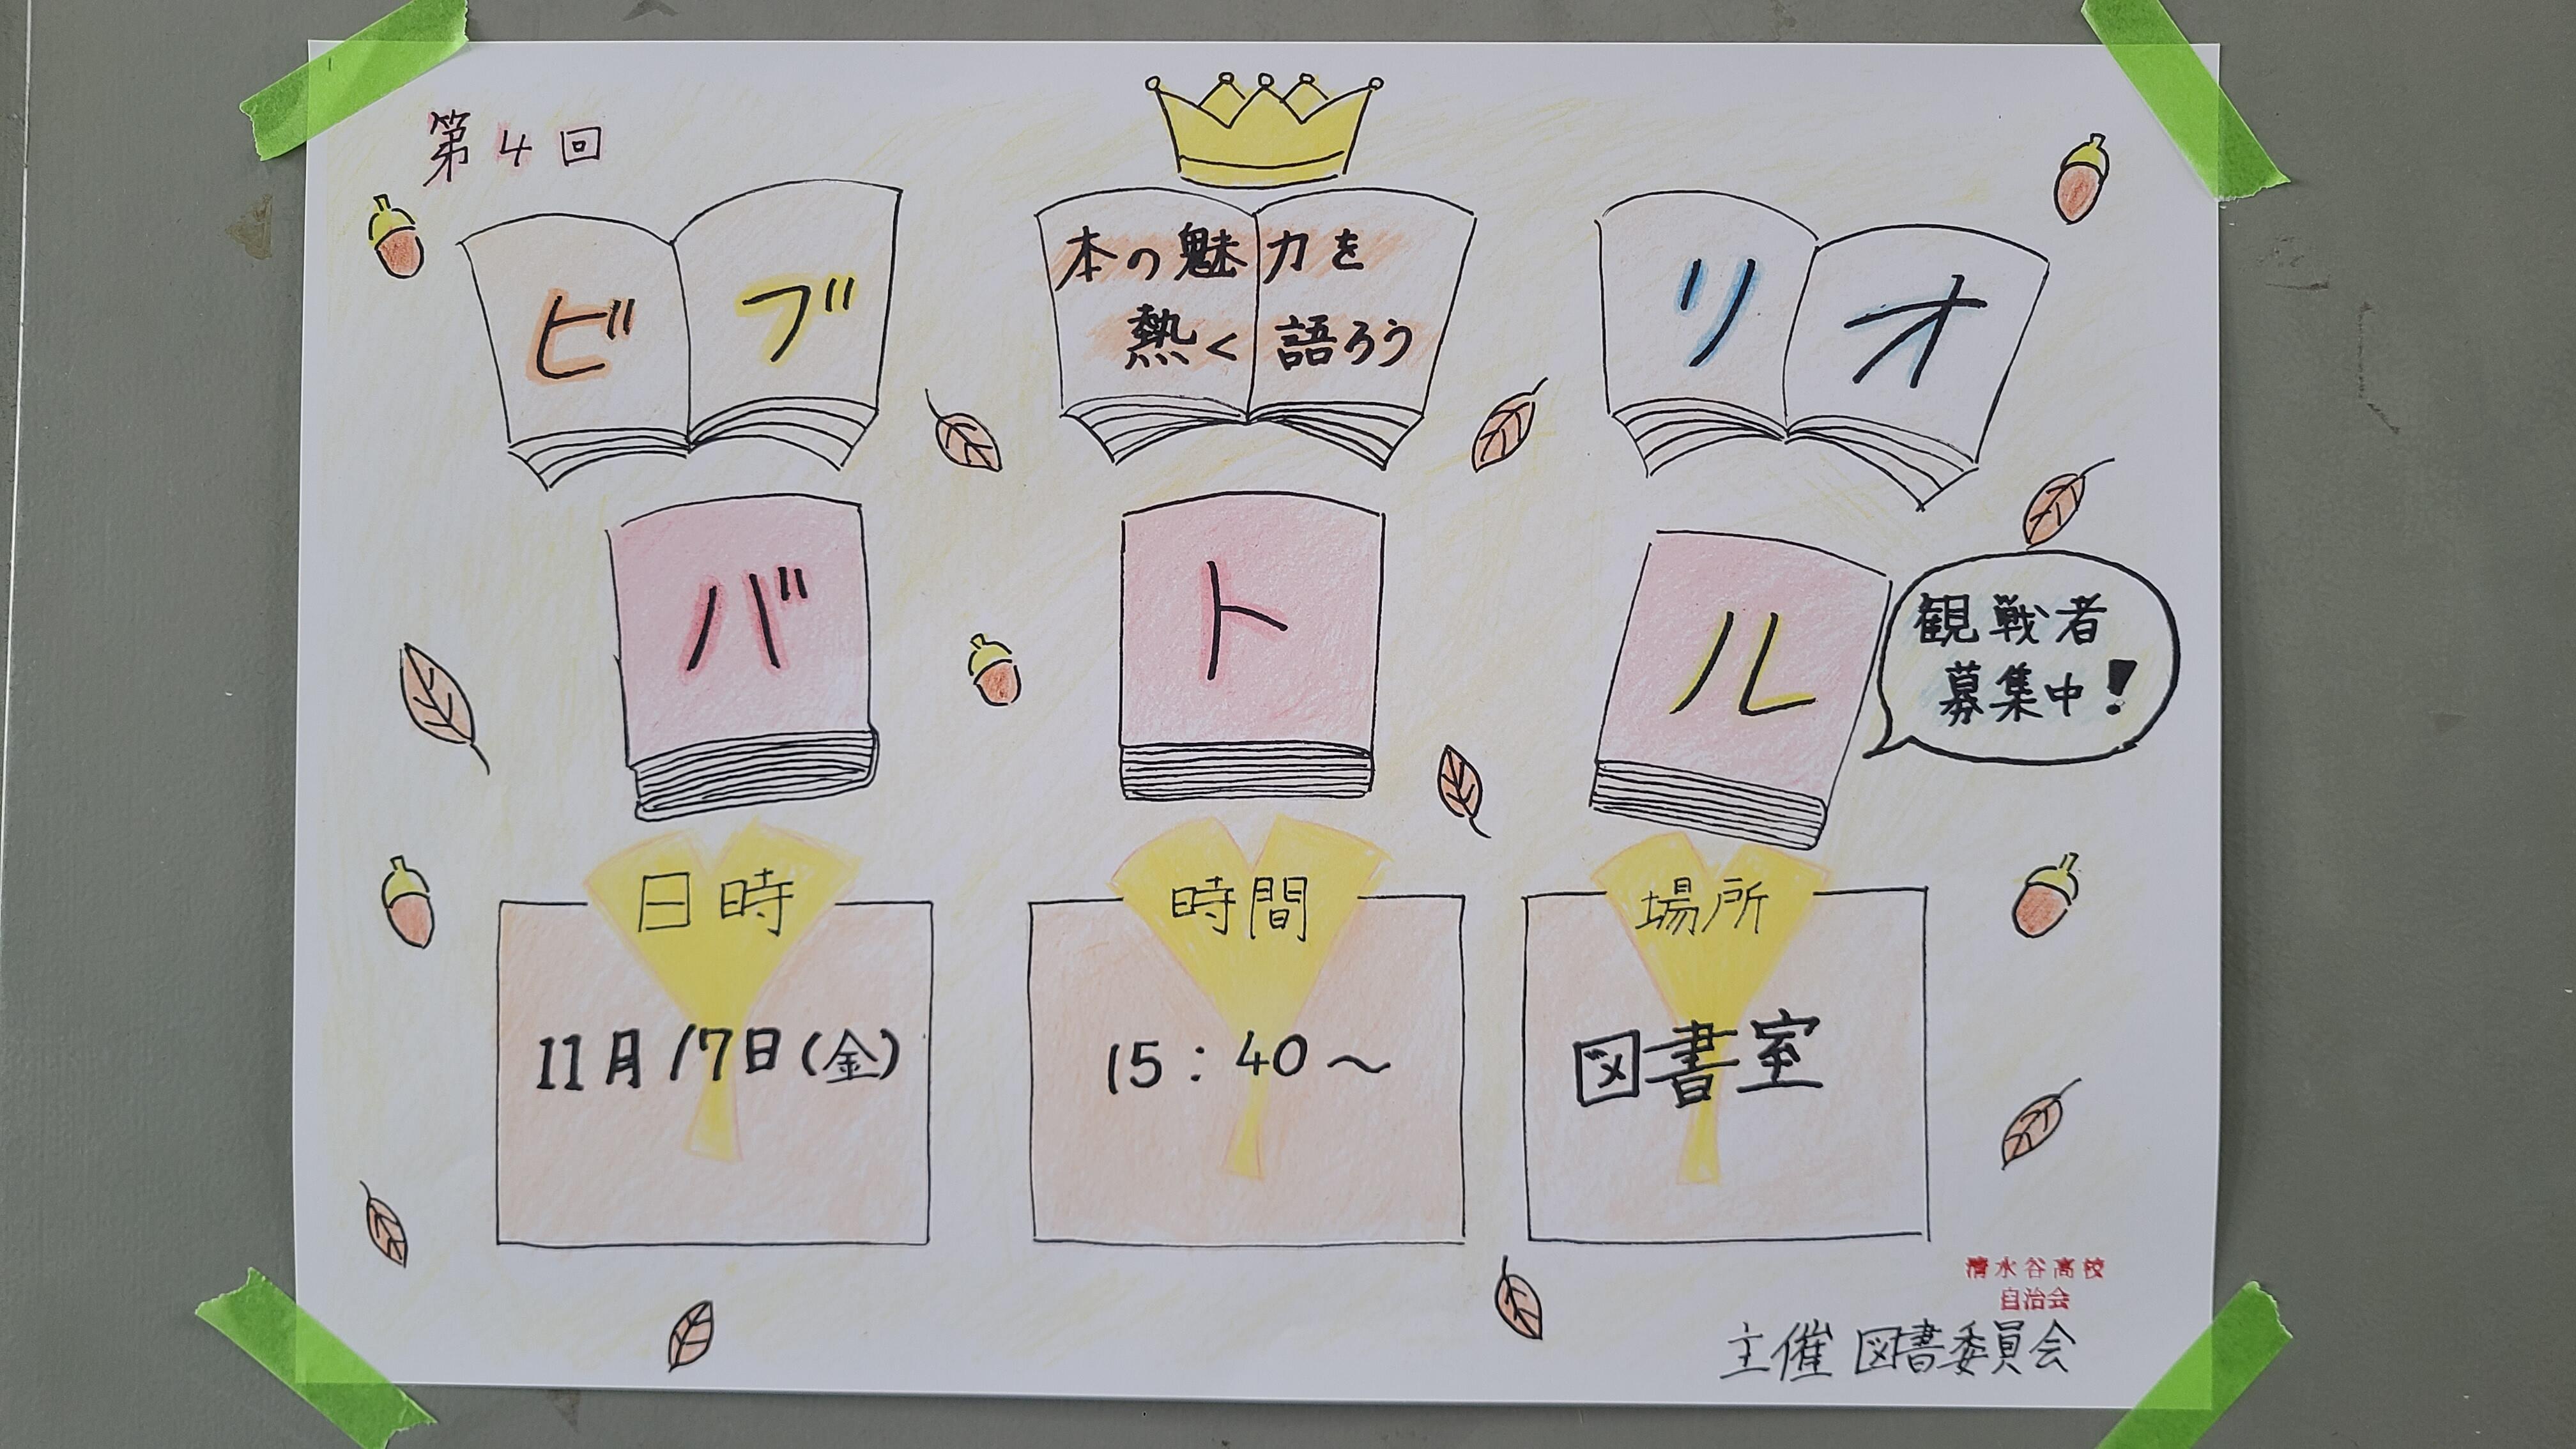 第4回
ビブ
本の魅力を
熱く語ろう
リオ
バトル
観戦者
募集中!
日時
11月17日(金)
時間
15:40~
場所
図書室
清水谷高校
自治会
主催 図書委員会